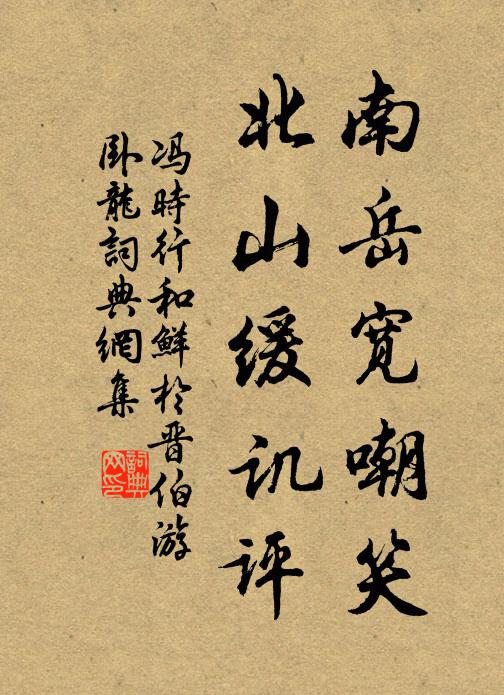 南岳宽嘲笑
北山缓讥评
冯時行和鮮於晋伯游
卧龍詞典網集
詞典网印